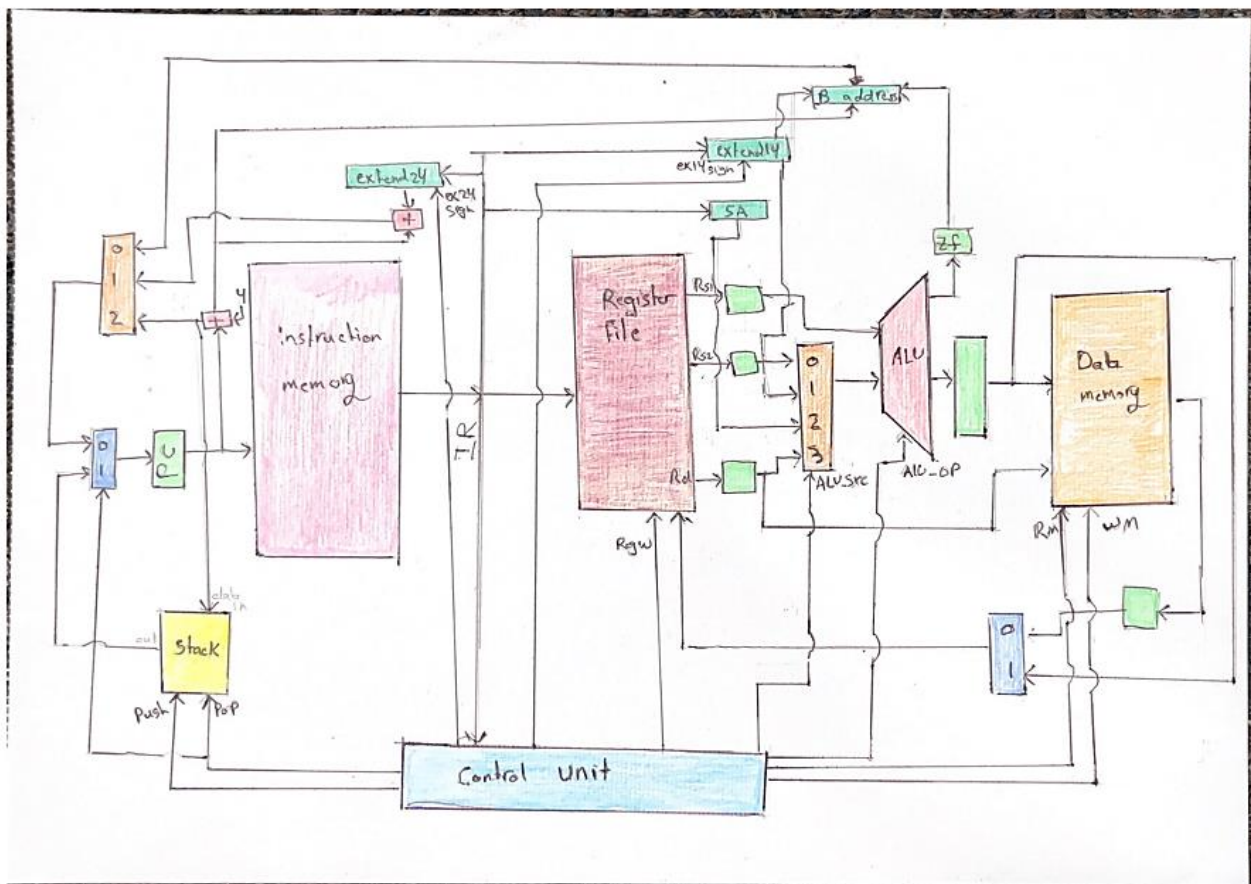 B address
extend14
ex14
sign
extend24
ex24
sign
SA
zf
0
1
2
4
+
+
instruction
memory
Register
file
Rs1
Rs2
Rd
0
1
2
3
ALU
Data
memory
IR
0
1
PC
ALU_Src
ALU_OP
RM
WM
Rgw
data
in
out
Stack
Push
POP
0
1
Control unit